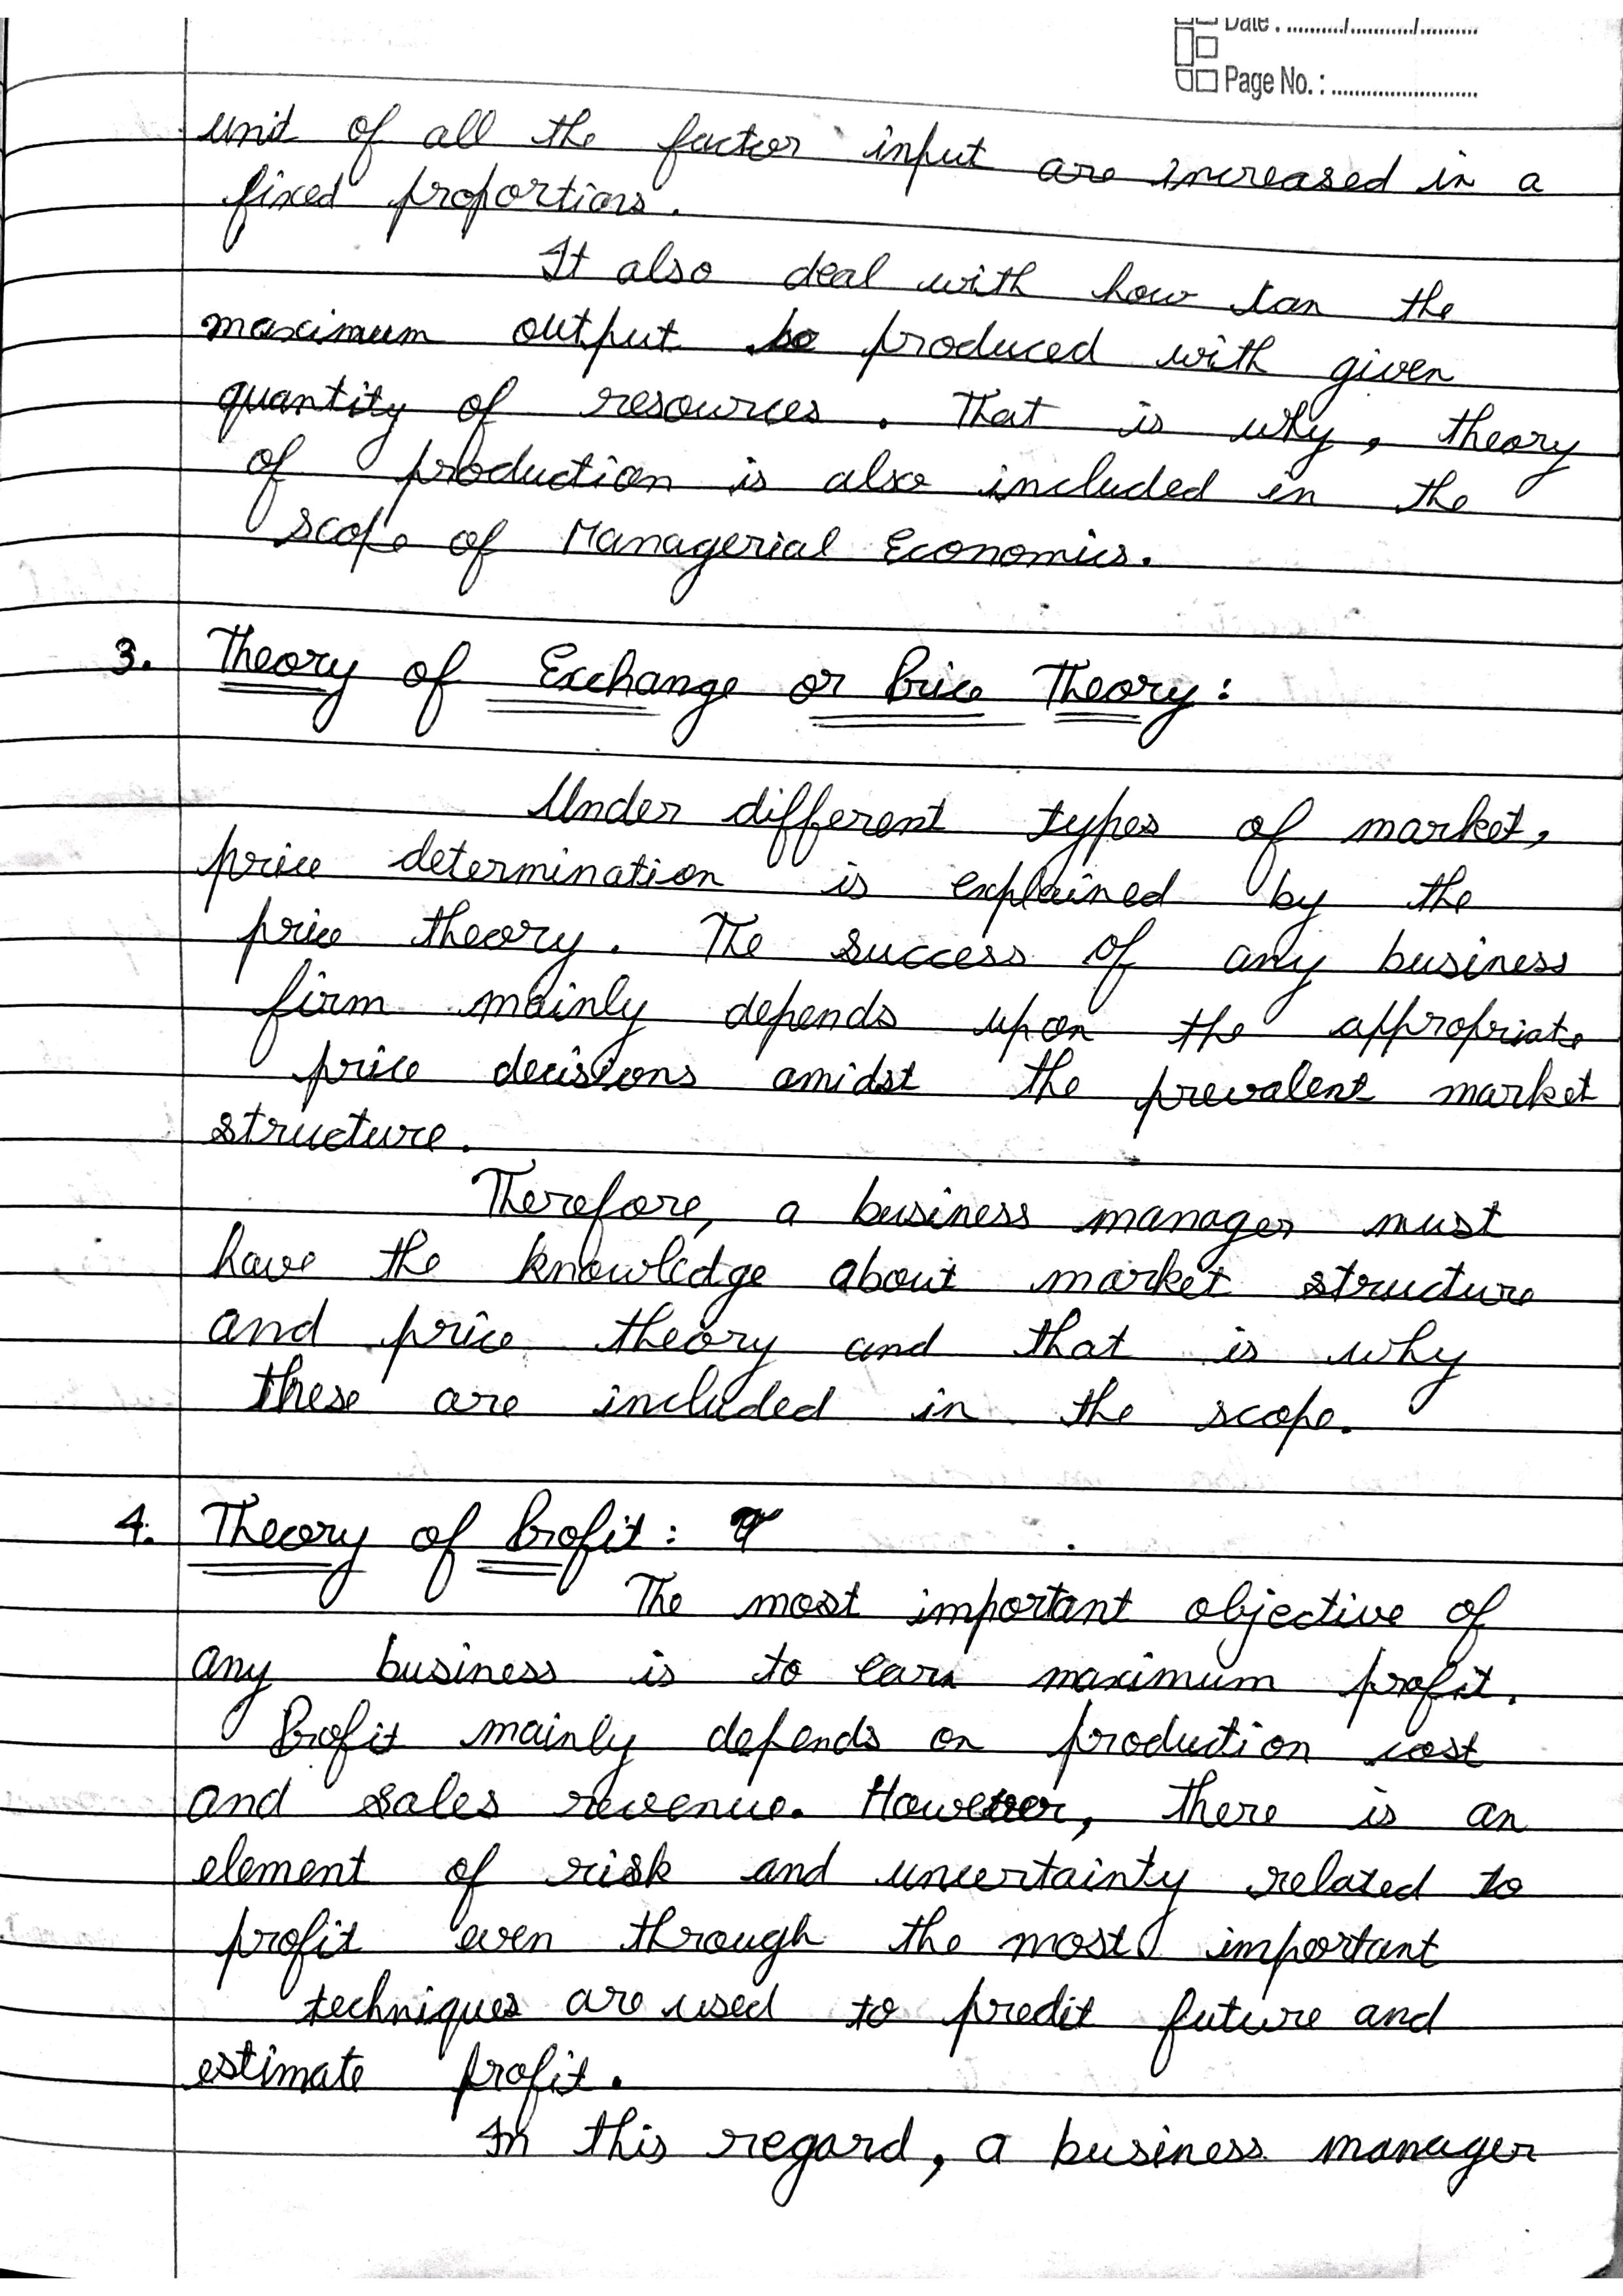 Date : ........./.........../..........
Page No. : .........................
unit of all the factor input are increased in a
fixed proportions.
It also deal with how can the
maximum output be produced with given
quantity of resources. That is why, theory
of production is also included in the
scope of Managerial Economics.
3. Theory of Exchange or Price Theory :
Under different types of market,
price determination is explained by the
price theory. The success of any business
firm mainly depends upon the appropriate
price decisions amidst the prevalent market
structure.
Therefore, a business manager must
have the knowledge about market structure
and price theory and that is why
these are included in the scope.
4. Theory of Profit :
The most important objective of
any business is to earn maximum profit.
Profit mainly depends on production cost
and sales revenue. However, there is an
element of risk and uncertainty related to
profit even through the most important
techniques are used to predit future and
estimate profit.
In this regard, a business manager